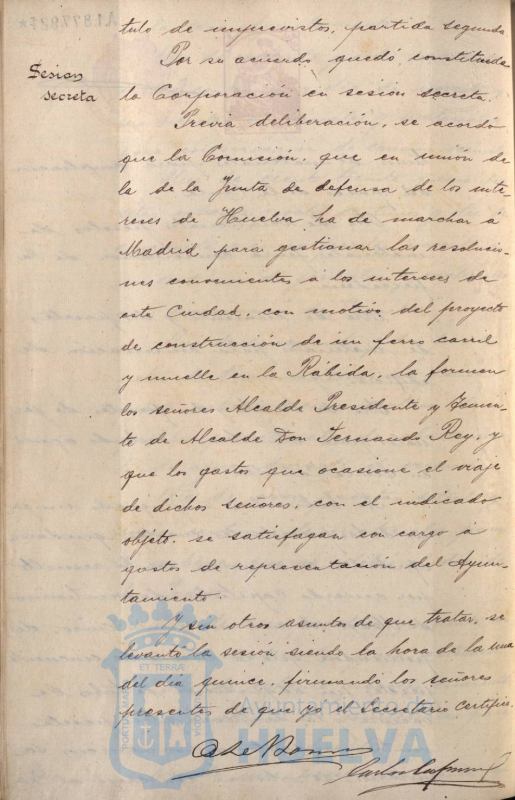 A1877927*
tulo de imprevistos, partida segunda
Por su acuerdo quedó constituida
Sesion
secreta
la Corporación en sesion secreta.
Previa deliberación, se acordó
que la Comisión, que en unión de
la de la Junta de defensa de los inte-
reses de Huelva ha de marchar á
Madrid para gestionar las resolucio-
nes convenientes á los intereses de
este Ciudad, con motivo del proyecto
de construcción de un ferro carril
y muelle en la Rábida, la formen
los señores Alcalde Presidente y Tenien-
te de Alcalde Don Fernando Rey, y
que los gastos que ocasione el viaje
de dichos señores, con el indicado
objeto, se satisfagan con cargo á
gastos de representación del Ayun-
tamiento.
Y sin otros asuntos de que tratar, se
levantó la sesión siendo la hora de la una
del dia quince, firmando los señores
presentes de que yo el Secretario certifico.
ET TERRÆ
PORTUS MARIS
CUSTODIA
Ayuntamiento de
HUELVA
Carlos